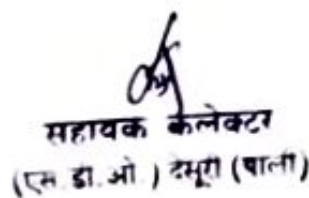 सहायक कलेक्टर
(एस. डी. ओ ) देसूरी (पाली)